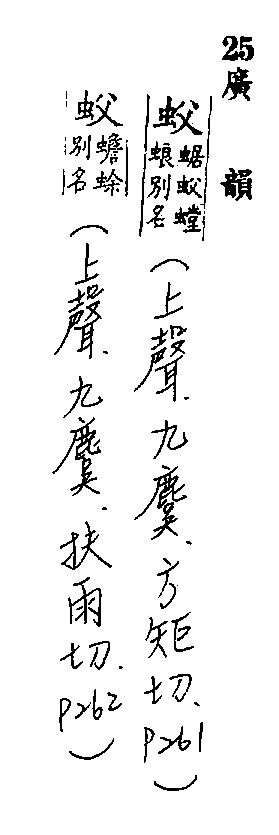 25廣韻
蚥蜛蚥螳蜋別名(上聲.九麌.方矩切.P261)
蚥蟾蜍別名(上聲.九麌.扶雨切.P262)